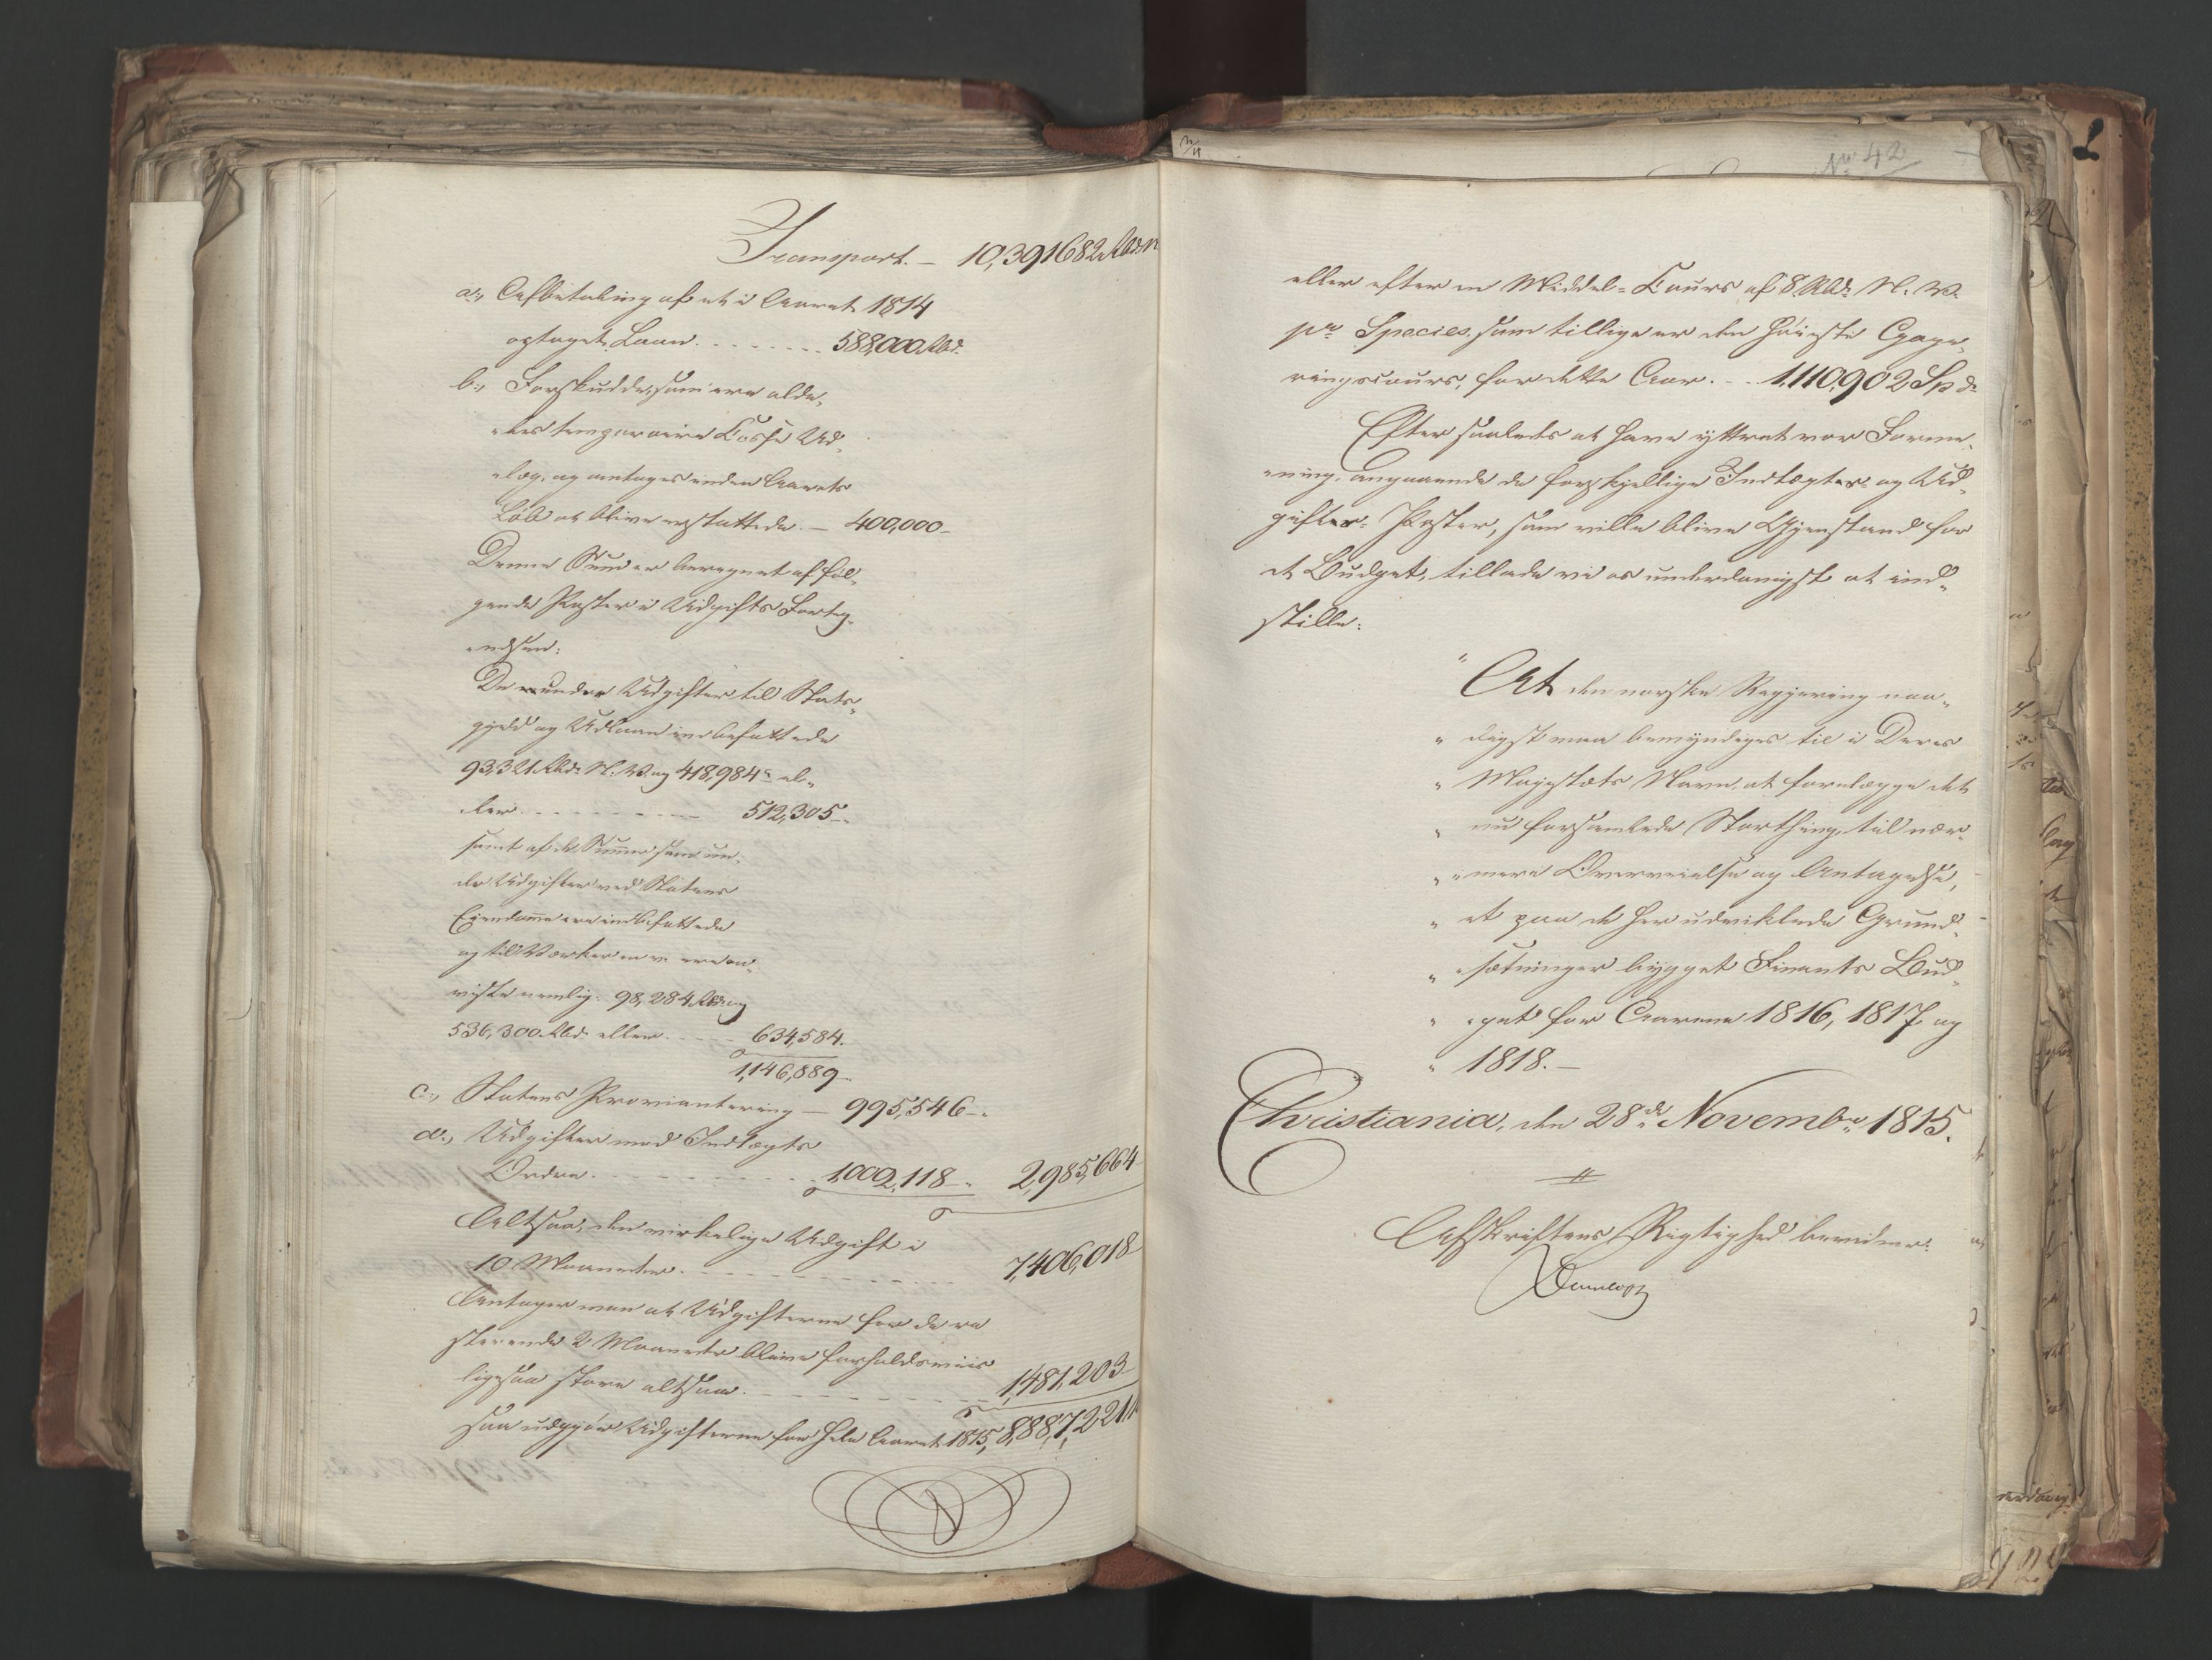 Transport. – 10,391682 Rbd. N
a., Afbetaling af et i Aaret 1814
optaget Laan. . . . . . . . 588,000 Rbd.
b., Forskudde, som ere alde-
-les temporaire Casse Ud-
-læg, og antages inden Aarets
Løb at blive erstattede. – 400,000 –
Denne Sum er beregnet af føl-
gende Poster i Udgifts Forteg-
-nelsen:
De under Udgifter til Stats-
gjeld og Udlaan indbefattede
93,321 Rbd. N. V. og 418,984 el-
-ler . . . . . . . . . 512,305 –
samt af de Summer som un-
der Udgifter ved Statens
Eiendomme ere indbefattede
og til Værkerne ere an-
viste nemlig: 98,284 Rbd. og
536,300 Rbd. eller . . . . 634,584.
1,146,889 –
c., Statens Proviantering – 995,546 –
d., Udgifter mod Indtægts
Ordre. . . . . . . . . 1,002,118 – 2,985,664
Altsaa, den virkelige Udgift i
10 Maaneder. . . . . . . . . 7,406,018
Antager man at Udgifterne for de re
sterende 2 Maaneder blive forholdsviis
ligesaa store altsaa. . . . . . . . 1,481,203
saa udgjør Udgifterne for hele Aaret 1815, 8,887,221
No 42
eller efter en Middel-Cours af 8 Rbd. N. V.
pr. Species, som tillige er den høieste Gage-
ringscours, for dette Aar. . . 1,110,902 Spd.
Efter saaledes at have yttret vor Forme-
-ning, angaaende de forskjellige Indtægter og Ud-
gifter-Poster, som ville blive Gjenstand for
et Budget, tillade vi os underdanigst at ind-
stille:
" At den norske Regjering naa-
" digst maa bemyndiges til i Deres
" Majestæts Navn, at forelægge det
" nu forsamlede Storthing, til nær-
" mere Overveielse og Antagelse,
" et paa de her udviklede Grund-
" sætninger bygget Finants Bud-
" get for Aarene 1816, 1817 og
" 1818. –
Christiania, den 28de Novembr 1815.
Afskriftens Rigtighed bevidner: